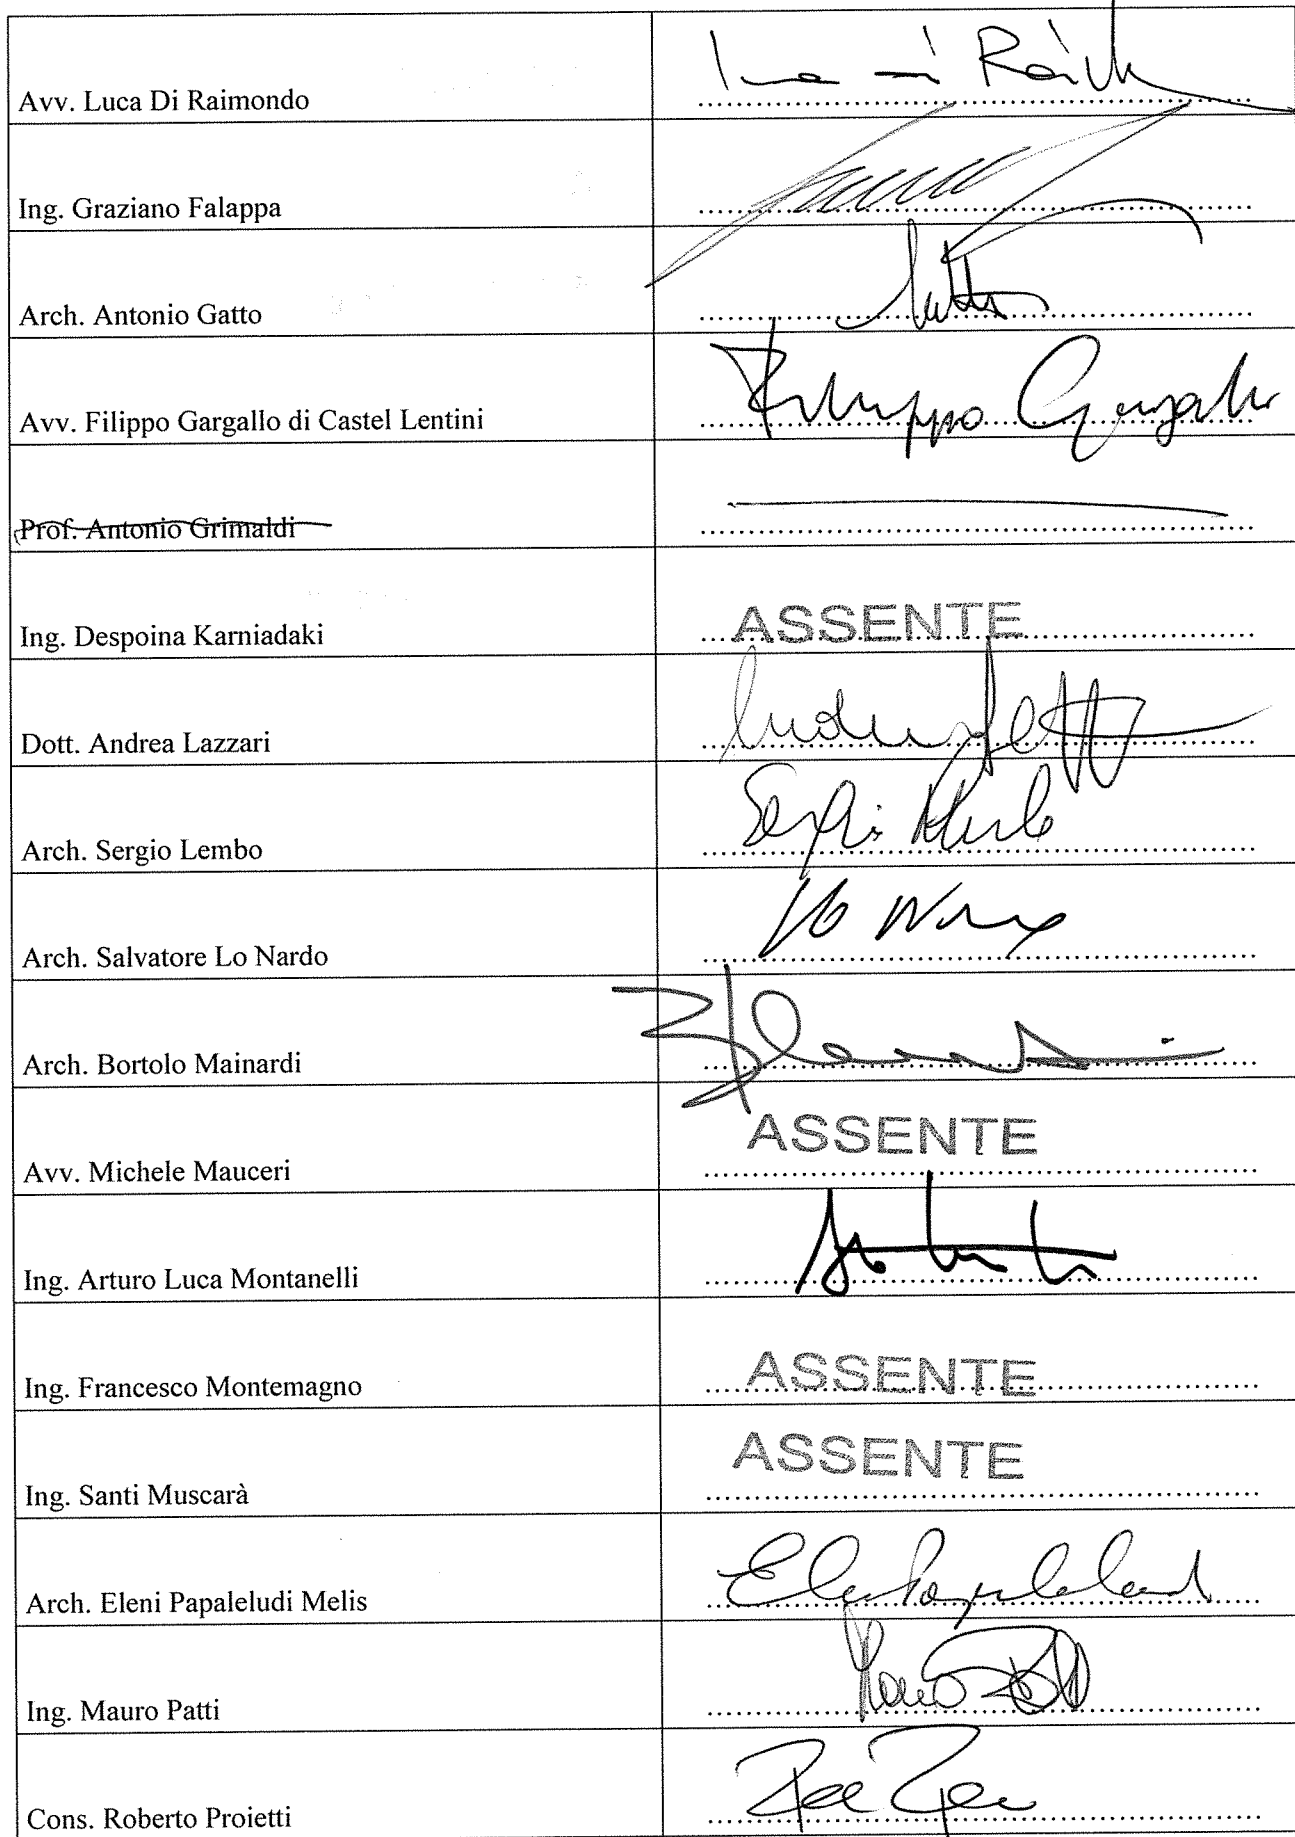 Avv. Luca Di Raimondo
Ing. Graziano Falappa
Arch. Antonio Gatto
Avv. Filippo Gargallo di Castel Lentini Filippo Gargallo
Prof. Antonio Grimaldi
Ing. Despoina Karniadaki ASSENTE
Dott. Andrea Lazzari
Arch. Sergio Lembo
Arch. Salvatore Lo Nardo
Arch. Bortolo Mainardi
Avv. Michele Mauceri ASSENTE
Ing. Arturo Luca Montanelli
Ing. Francesco Montemagno ASSENTE
Ing. Santi Muscarà ASSENTE
Arch. Eleni Papaleludi Melis
Ing. Mauro Patti
Cons. Roberto Proietti